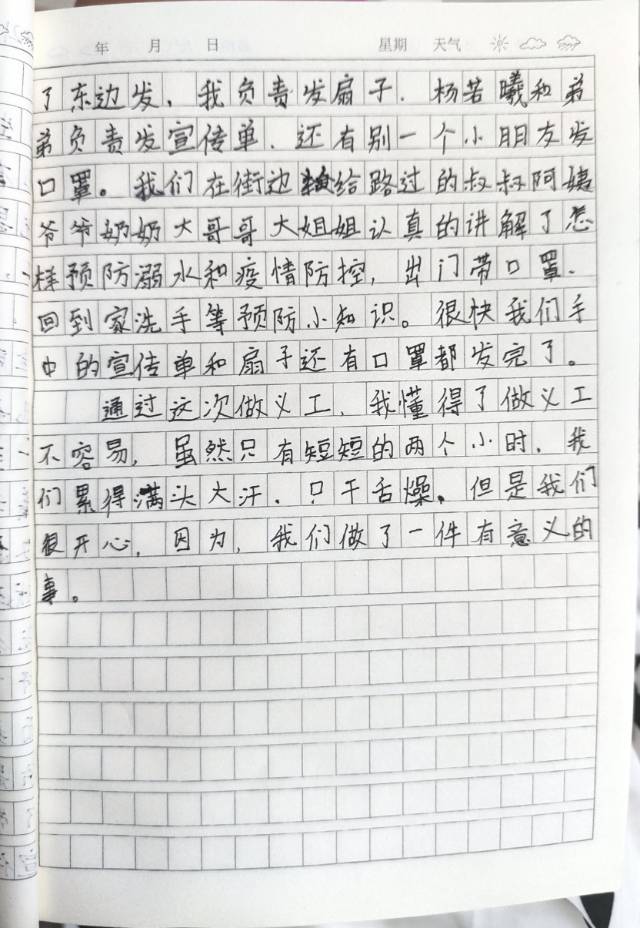 年 月 日 星期 天气
了东边发，我负责发扇子．杨若曦和弟
弟负责发宣传单．还有别一个小朋友发
口罩。我们在街边给路过的叔叔阿姨
爷爷奶奶大哥哥大姐姐认真的讲解了怎
样预防溺水和疫情防控，出门带口罩．
回到家洗手等预防小知识。很快我们手
中的宣传单和扇子还有口罩都发完了。
通过这次做义工，我懂得了做义工
不容易，虽然只有短短的两个小时，我
们累得满头大汗．口干舌燥。但是我们
很开心，因为，我们做了一件有意义的
事。